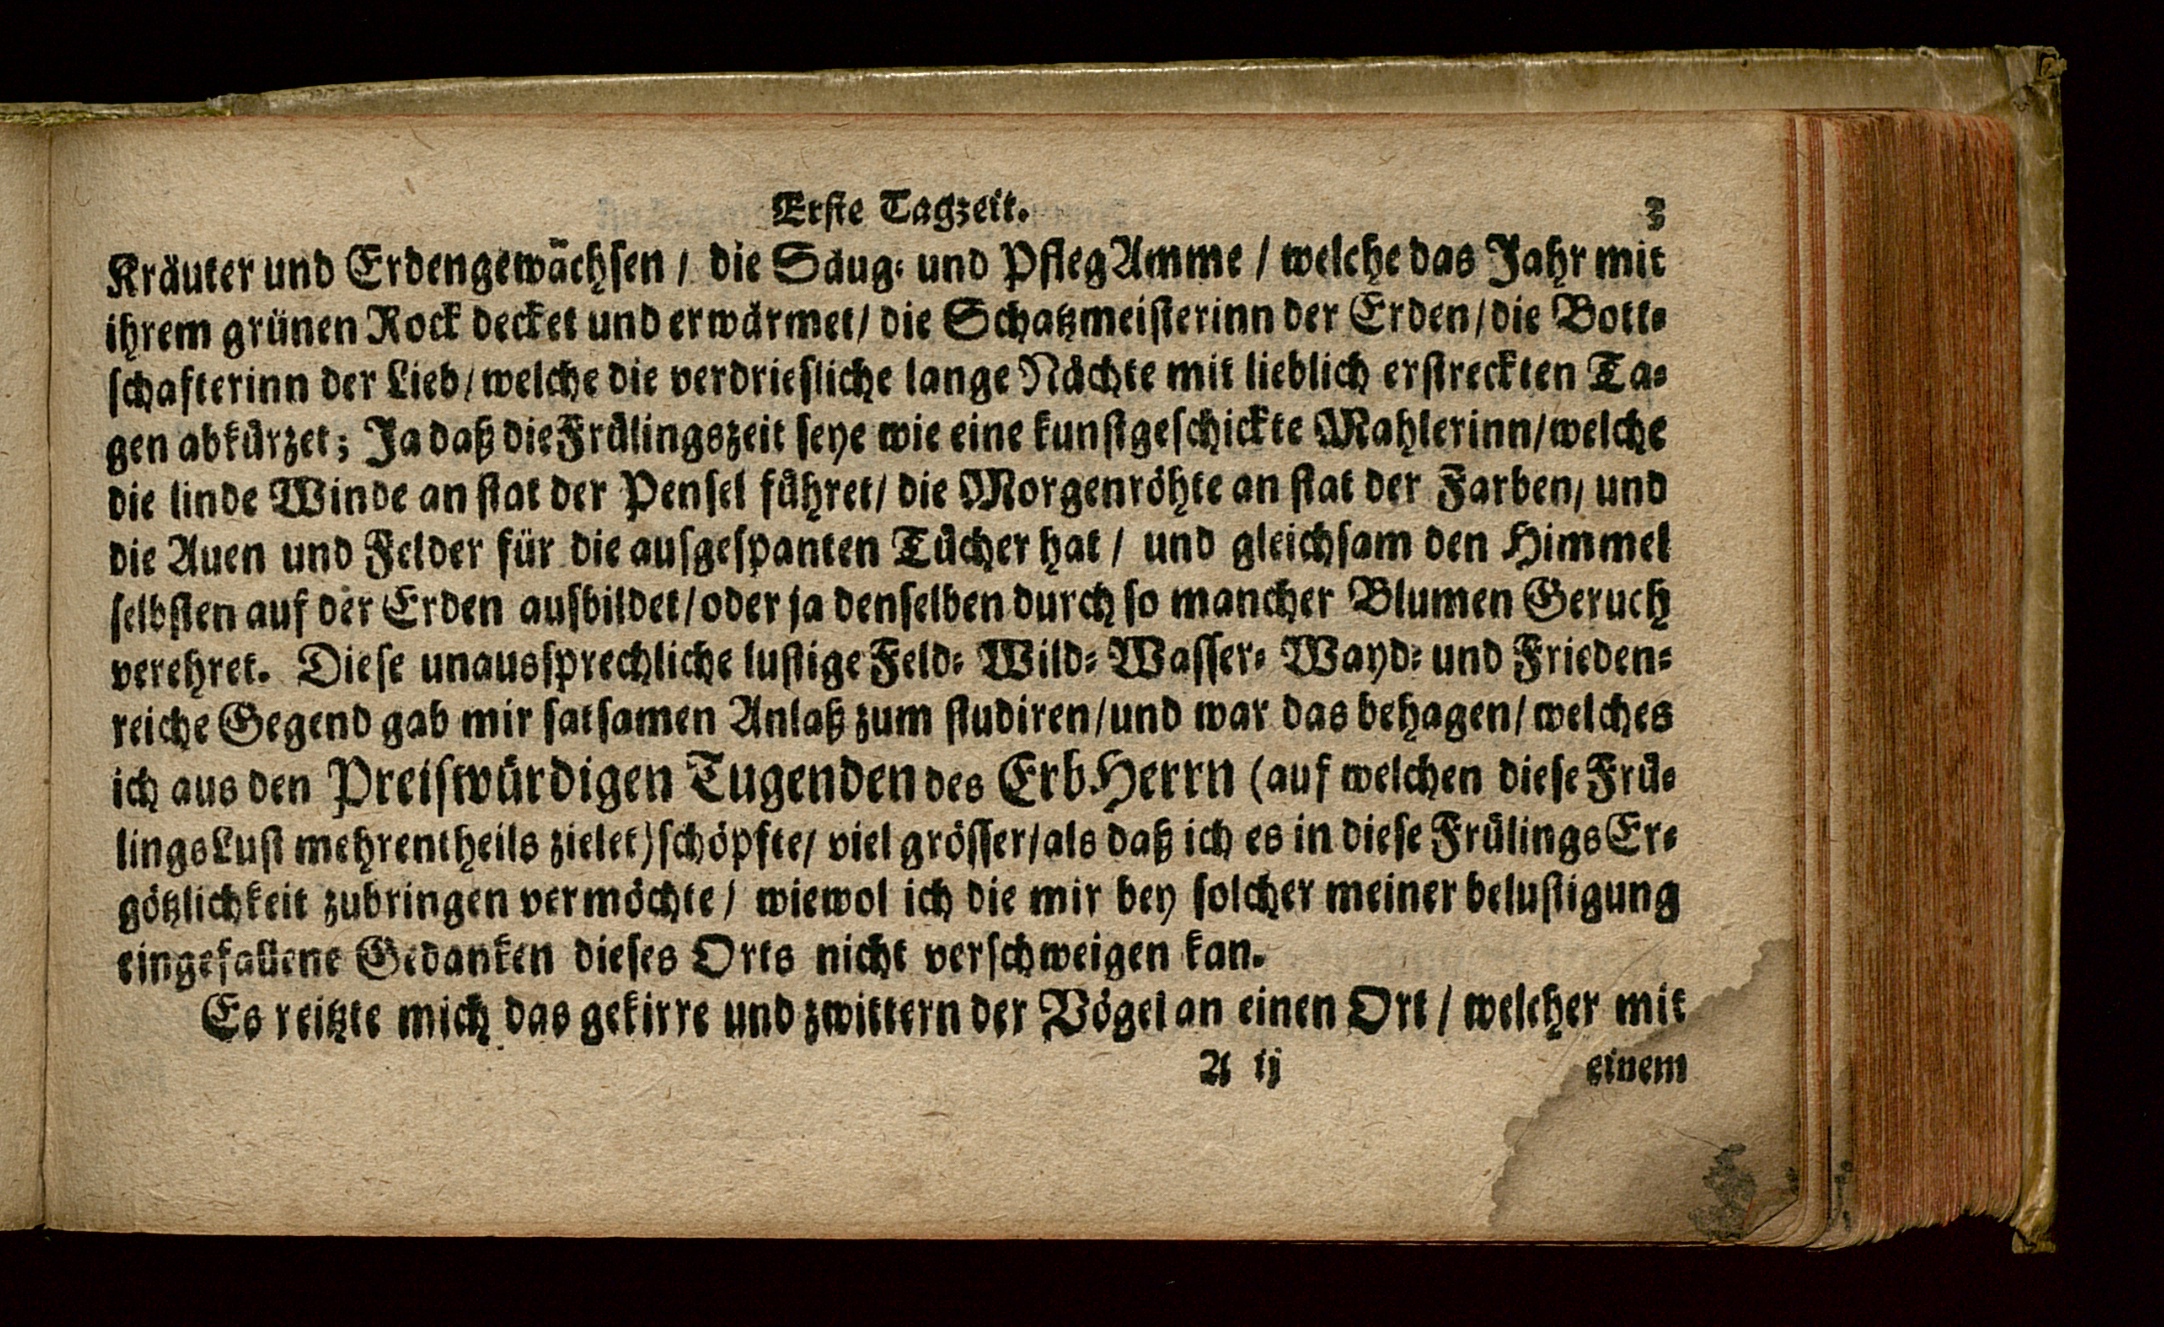 Erste Tagzeit. 3
Kräuter und Erdengewächsen / die Säug- und PflegAmme / welche das Jahr mit
ihrem grünen Rock decket und erwärmet / die Schatzmeisterinn der Erden / die Bott-
schafterinn der Lieb / welche die verdriesliche lange Nächte mit lieblich erstreckten Ta-
gen abkürzet; Ja daß die Frülingszeit seye wie eine kunstgeschickte Mahlerinn / welche
die linde Winde an stat der Pensel führet / die Morgenröhte an stat der Farben / und
die Auen und Felder für die ausgespanten Tücher hat / und gleichsam den Himmel
selbsten auf der Erden ausbildet / oder ja denselben durch so mancher Blumen Geruch
verehret. Diese unaussprechliche lustige Feld- Wild- Wasser- Wayd- und Frieden-
reiche Gegend gab mir satsamen Anlaß zum studiren / und war das behagen / welches
ich aus den Preiswürdigen Tugenden des ErbHerrn (auf welchen diese Frü-
lingsLust mehrentheils zielet) schöpfte / viel grösser / als daß ich es in diese FrülingsEr-
götzlichkeit zubringen vermöchte / wiewol ich die mir bey solcher meiner belustigung
eingefallene Gedanken dieses Orts nicht verschweigen kan.
Es reitzte mich das gekirre und zwittern der Vögel an einen Ort / welcher mit
A ij einem